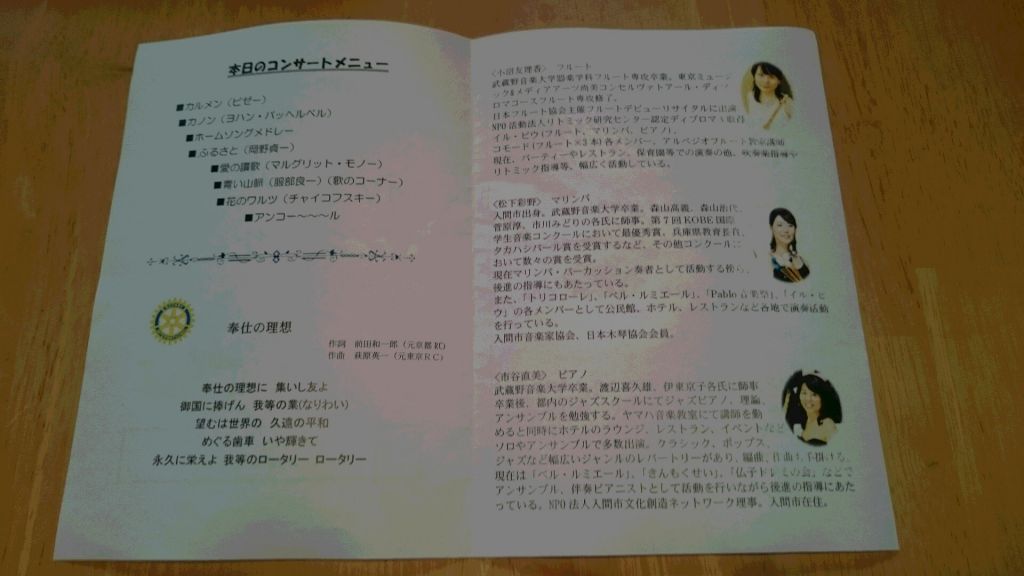 本日のコンサートメニュー
■カルメン（ビゼー）
■カノン（ヨハン・パッヘルベル）
■ホームソングメドレー
■ふるさと（岡野貞一）
■愛の讃歌（マルグリット・モノー）
■青い山脈（服部良一）（歌のコーナー）
■花のワルツ（チャイコフスキー）
■アンコ〜〜〜〜ル
奉仕の理想
作詞　前田和一郎（元京都RC）
作曲　萩原英一（元東京ＲＣ）
奉仕の理想に　集いし友よ
御国に捧げん　我等の業(なりわい)
望むは世界の　久遠の平和
めぐる歯車　いや輝きて
永久に栄えよ　我等のロータリー　ロータリー
〈小沼友理香〉　フルート
武蔵野音楽大学器楽学科フルート専攻卒業。東京ミュージ
ック&メディアアーツ尚美コンセルヴァトアール・ディプ
ロマコースフルート専攻修了。
日本フルート協会主催フルートデビューリサイタルに出演
NPO活動法人リトミック研究センター認定ディプロマA取得
イル・ピウ(フルート、マリンバ、ピアノ)、
コモード(フルート×3本)各メンバー。アルペジオフルート教室講師
現在、パーティーやレストラン、保育園等での演奏の他、吹奏楽指導や
リトミック指導等、幅広く活動している。
〈松下彩野〉　マリンバ
入間市出身。武蔵野音楽大学卒業。森山高義、森山浩代、
菅原淳、市川みどりの各氏に師事。第７回KOBE国際
学生音楽コンクールにおいて最優秀賞、兵庫県教育長賞、
タカハシパール賞を受賞するなど、その他コンクールに
おいて数々の賞を受賞。
現在マリンバ・パーカッション奏者として活動する傍ら、
後進の指導にもあたっている。
また、「トリコローレ」、「ベル・ルミエール」、「Pablo音楽祭」、「イル・ピ
ウ」の各メンバーとして公民館、ホテル、レストランなど各地で演奏活動
を行っている。
入間市音楽家協会、日本木琴協会会員。
〈市谷直美〉　ピアノ
武蔵野音楽大学卒業。渡辺喜久雄、伊東京子各氏に師事
卒業後、都内のジャズスクールにてジャズピアノ、理論、
アンサンブルを勉強する。ヤマハ音楽教室にて講師を勤
めると同時にホテルのラウンジ、レストラン、イベントなど
ソロやアンサンブルで多数出演。クラシック、ポップス、
ジャズなど幅広いジャンルのレパートリーがあり、編曲、作曲も手掛ける。
現在は「ベル・ルミエール」、「きんもくせい」、「仏子ドレミの会」などで
アンサンブル、伴奏ピアニストとして活動を行いながら後進の指導にあた
っている。NPO法人入間市文化創造ネットワーク理事。入間市在住。